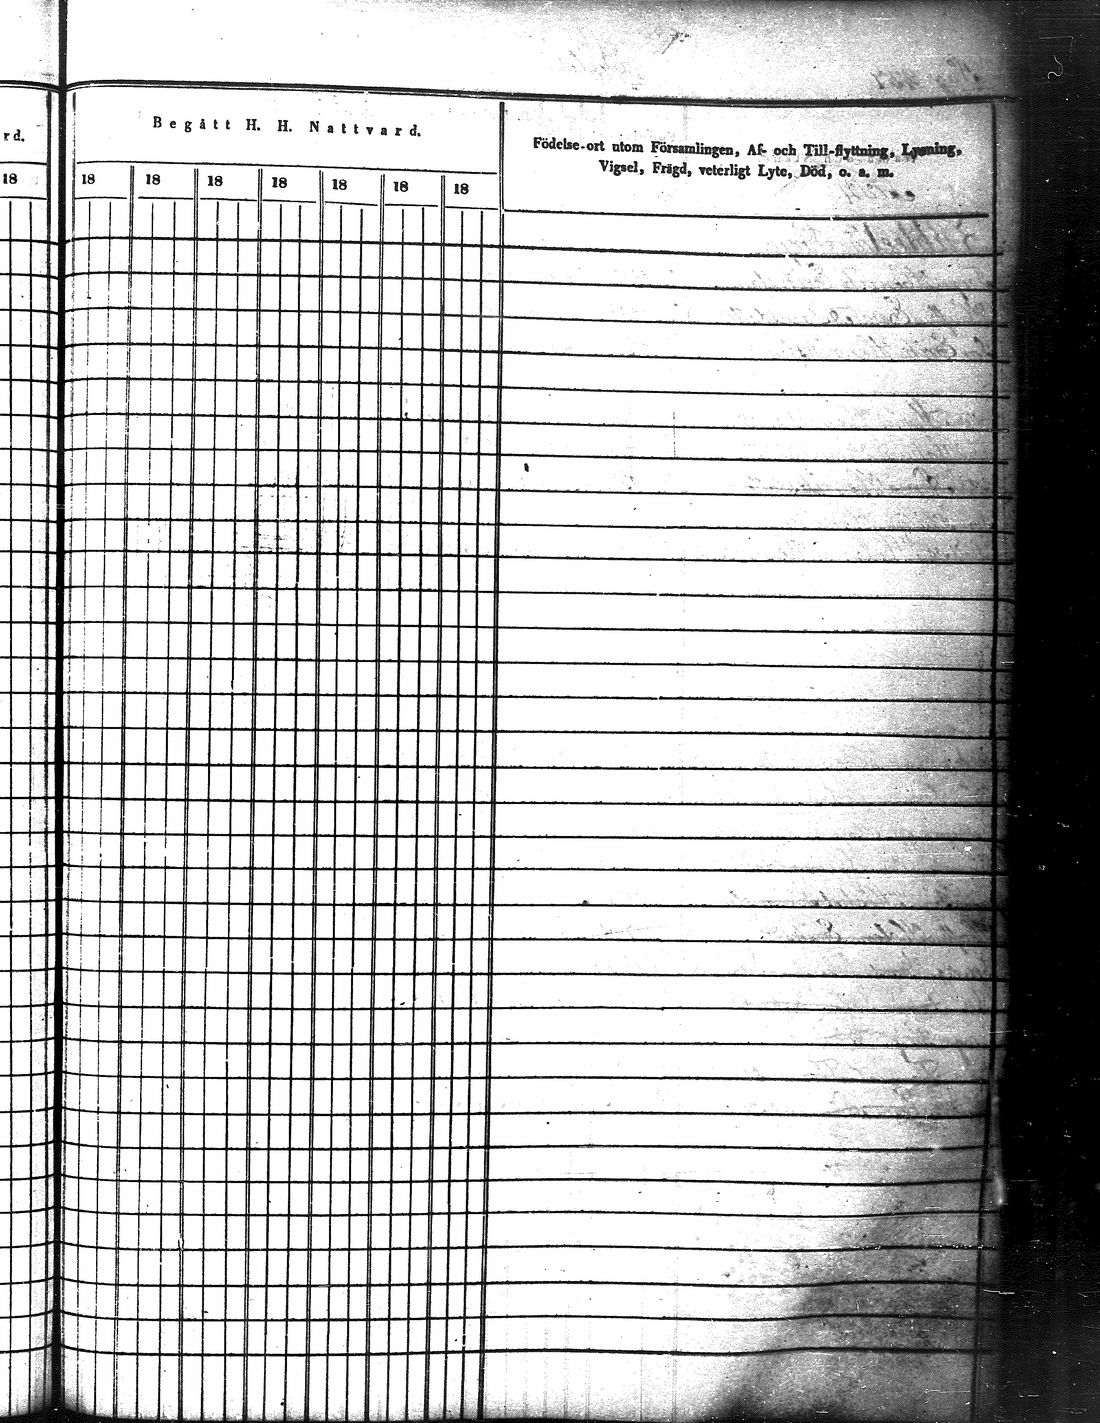 rd.
Begått H. H. Nattvard.
Födelse-ort utom Församlingen, Af- och Till-flyttning, Lysning,
Vigsel, Frägd, veterligt Lyte, Död, o. a. m.
18 18 18 18 18 18 18 18